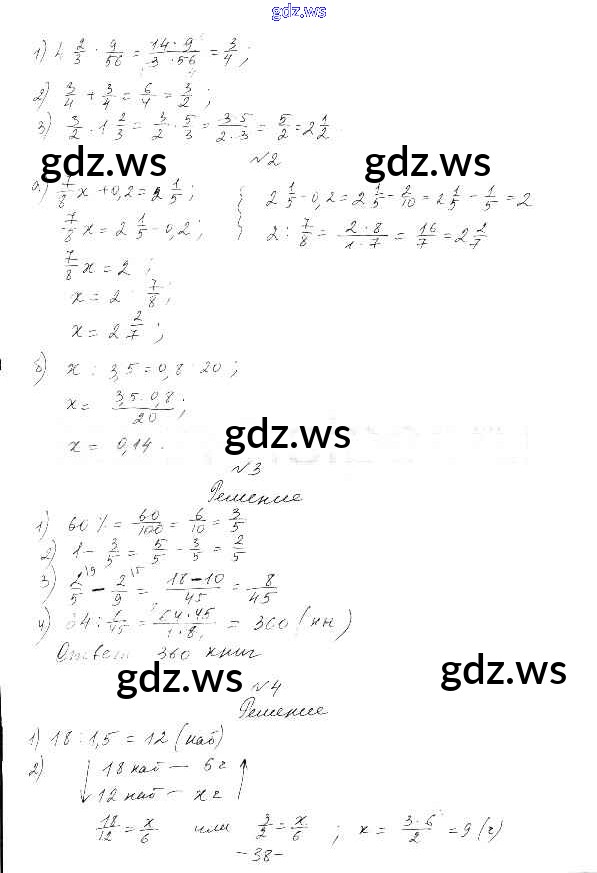 gdz.ws
1) 4 2/3 · 9/56 = 14·9/3·56 = 3/4;
2) 3/4 + 3/4 = 6/4 = 3/2;
3) 3/2 · 1 2/3 = 3/2 · 5/3 = 3·5/2·3 = 5/2 = 2 1/2.
gdz.ws gdz.ws
№2
а) 7/8 x + 0,2 = 2 1/5; } 2 1/5 - 0,2 = 2 1/5 - 2/10 = 2 1/5 - 1/5 = 2
7/8 x = 2 1/5 - 0,2; } 2 : 7/8 = 2·8/1·7 = 16/7 = 2 2/7
7/8 x = 2;
x = 2 : 7/8;
x = 2 2/7;
б) x : 3,5 = 0,8 : 20;
x = 3,5·0,8/20;
x = 0,14.
gdz.ws
№3
Решение
1) 60% = 60/100 = 6/10 = 3/5
2) 1 - 3/5 = 5/5 - 3/5 = 2/5
3) 2/5 \9 - 2/9 \5 = 18-10/45 = 8/45
4) 64 : 8/45 = 64·45/1·8 = 360 (кн)
Ответ 360 книг
gdz.ws gdz.ws
№4
Решение
1) 18 : 1,5 = 12 (наб)
2) ↓ 18 наб — 6 ч ↑
12 наб — x ч
18/12 = x/6 или 3/2 = x/6; x = 3·6/2 = 9 (ч)
-38-